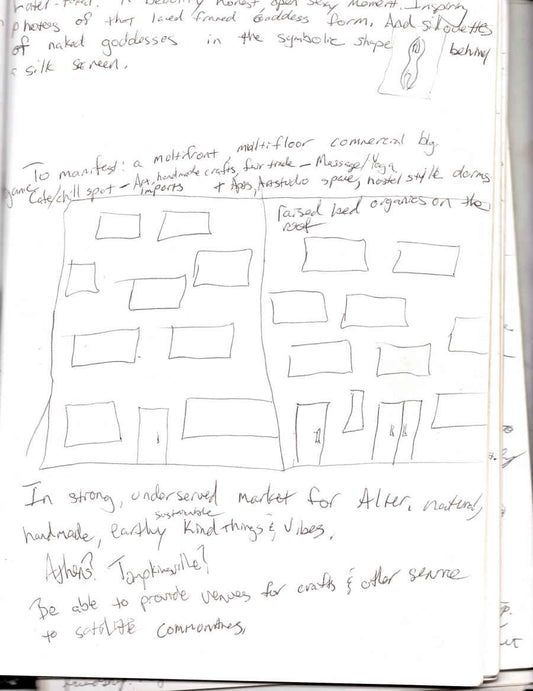 A Decently honest, open sexy moment. Inspiring
photos of that laced framed Goddess form. And silouettes
of naked goddesses in the symbolic shape behind
a silk screen.
To manifest: a multifront multifloor commercial blg.
Organic Cafe/chill spot – Art, handmade crafts, fair trade imports – Massage/Yoga
+ Apts, Artstudio space, hostel style dorms
raised bed organics on the
roof
In strong, underserved market for Alter, natural,
handmade, earthy sustainable Kind things & Vibes.
Athens? Tompkinsville?
Be able to provide venues for crafts & other service
to satilite communities.